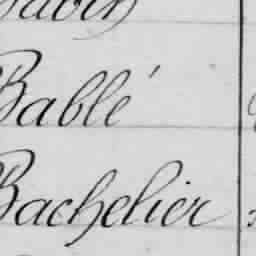 Bablé
Bachelier